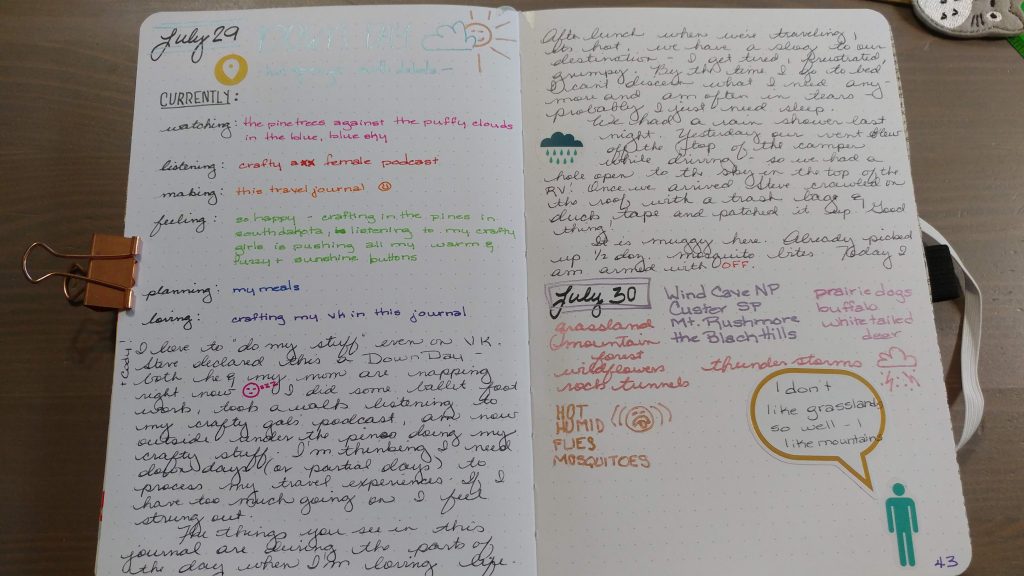 July 29
DOWN DAY
hot springs, south dakota
CURRENTLY:
watching: the pine trees against the puffy clouds
in the blue, blue sky
listening: crafty axx female podcast
making: this travel journal
feeling: so happy - crafting in the pines in
south dakota, listening to my crafty
girls is pushing all my warm &
fuzzy + sunshine buttons
planning: my meals
loving: crafting my vk in this journal
I love to "do my stuff" even on VK.
Steve declared this a Down Day -
both he & my mom are napping
right now zzz I did some ballet foot
work, took a walk listening to
my crafty gals podcast, am now
outside under the pines doing my
crafty stuff. I'm thinking I need
down days (or partial days) to
process my travel experiences. If I
have too much going on I feel
strung out.
The things you see in this
journal are during the parts of
the day when I'm loving life.
+ Cody
After lunch when we're traveling,
its hot, we have a slog to our
destination - I get tired, frustrated,
grumpy. By the time I go to bed
I cant discern what I need any
more and am often in tears -
probably I just need sleep.
We had a rain shower last
night. Yesterday our vent blew
off the top of the camper
while driving - so we had a
hole open to the sky in the top of the
RV! Once we arrived Steve crawled on
the roof with a trash bag &
duck tape and patched it up. Good
thing!
It is muggy here. Already picked
up 1/2 doz. mosquito bites. Today I
am armed with OFF.
July 30
Wind Cave NP
Custer SP
Mt. Rushmore
the Black Hills
prairie dogs
buffalo
white tailed
deer
grassland
mountain
forest
wildflowers
rock tunnels
thunder storms
HOT
HUMID
FLIES
MOSQUITOES
I don't
like grasslands
so well - I
like mountains
43